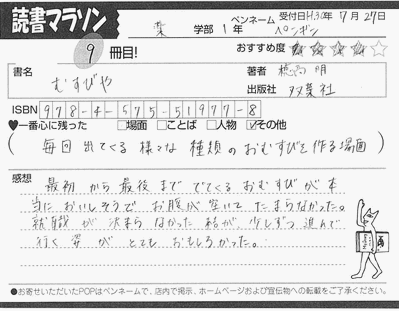 読書マラソン
薬 学部 1年
ペンネーム ペンギン
受付日 H30年 7月 27日
9 冊目!
おすすめ度 ☆☆☆☆☆
書名 むすびや
著者 穂高 明
出版社 双葉社
ISBN 978-4-575-51977-8
♥一番心に残った □場面 □ことば □人物 ☑その他
(毎回出てくる様々な種類のおむすびを作る場面)
感想
最初から最後まででてくるおむすびが本
当においしそうでお腹が空いてたまらなかった。
就職が決まらなかった結が、少しずつ進んで
行く姿がとてもおもしろかった。
●お寄せいただいたPOPはペンネームで、店内で掲示、ホームページおよび宣伝物への転載をご了承ください。